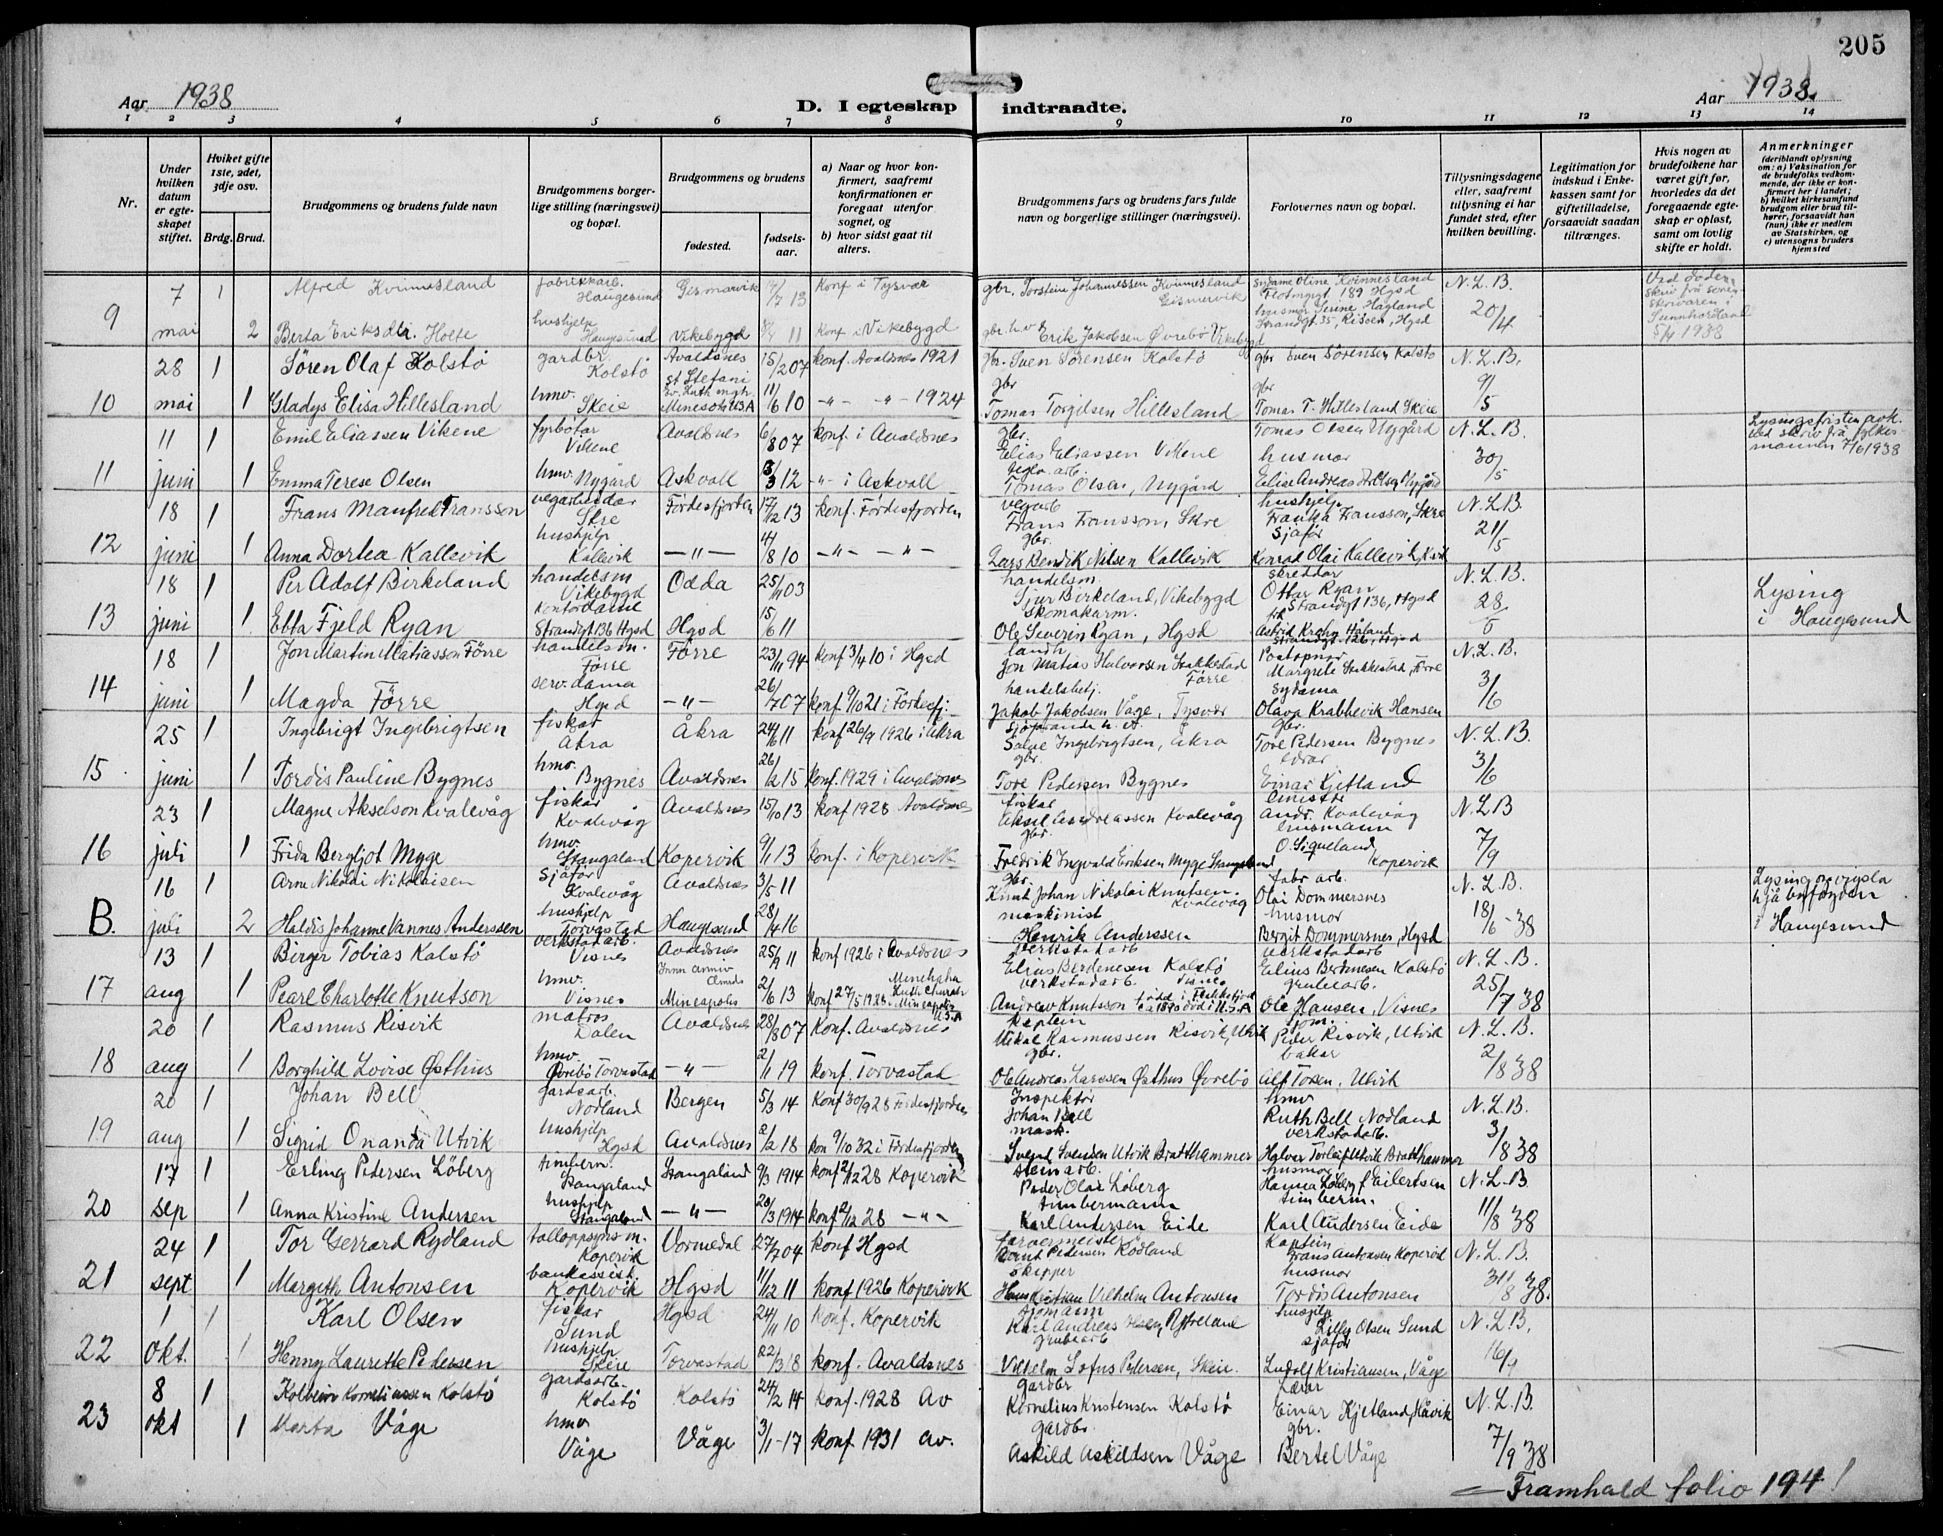 205
Aar 1938
D. I egteskap indtraadte.
Aar 1938.
1 2 3 4 5 6 7 8 9 10 11 12 13 14
Nr.
Under hvilken datum er egteskapet stiftet.
Hviket gifte 1ste, 2det, 3dje osv.
Brdg. Brud.
Brudgommens og brudens fulde navn
Brudgommens borgerlige stilling (næringsvei) og bopæl.
Brudgommens og brudens
fødested.
fødselsaar.
a) Naar og hvor konfirmert, saafremt konfirmationen er foregaat utenfor sognet, og
b) hvor sidst gaat til alters.
Brudgommens fars og brudens fars fulde navn og borgerlige stillinger (næringsvei).
Forlovernes navn og bopæl.
Tillysningsdagene eller, saafremt tillysning ei har fundet sted, efter hvilken bevilling.
Legitimation for indskud i Enkekassen samt for giftetilladelse, forsaavidt saadan tiltrænges.
Hvis nogen av brudefolkene har været gift før, hvorledes da det foregaaende egteskap er opløst, samt om lovlig skifte er holdt.
Anmerkninger
(deriblandt oplysning om: a) Vaksination for de brudefolks vedkommende, der ikke er konfirmert her i landet; b) hvilket kirkesamfund brudgom eller brud tilhører, forsaavidt han (hun) ikke er medlem av Statskirken, og c) utensogns bruders hjemsted
9 7 1 Alfred Kvinnesland fabrikkarb. Haugesund Gismarvik 13 konf i Tysvær gbr. Torstein Johannessen Kvinnesland Gismervik Syd­ame Oline Kvinnesland Flotmyrgt 189 Hgsd N. L. B.
mai 2 Berta Eriksdtr. Holte hushjelp Haugesund Vikebygd 11 konf i Vikebygd gbr. Erik Jakobsen Øvrebø Vikebygd husmor Serine Hagland Strandgt 35, Risøen, Hgsd 20/4 5/4 1938
28 1 Søren Olaf Kolstø gardbr. Kolstø Avaldsnes 15/2 07 konf. Avaldsnes 1921 gbr. Sven Sørensen Kolstø gbr Sven Sørensen Kolstø N. L. B.
10 mai 1 Gladys Elisa Hillesland hmv. Skeie Minesota USA 11/6 10 -"- -"- 1924 gbr Tomas Torgilsen Hillesland gbr Tomas T. Hillesland Skeie 9/5
11 1 Emil Eliassen Vikene fyrbøtar Vikene Avaldsnes 6/8 07 konf. i Avaldsnes gbr. Elias Eliassen Vikene Tomas Olsen Nygård N. L. B. Lysingsfristen avk. ved skriv frå fylkesmannen 7/6 1938
11 juni 1 Emma Terese Olsen hmv. Nygård Askvoll 3/3 12 -"- i Askvoll Tomas Olsen, Nygård husmor Elise Andrea Olsen Nygård 30/5
18 1 Frans Manfred Fransson vegarbeider Skre Førdesfjorden 17/12 13 konf. Førdesfjorden vegarb Frans Fransson, Skre hushjelp Franka Fransson, Skre N. L. B.
12 juni 1 Anna Dortea Kallevik hushjelp Kallevik -"- 4/8 10 -"- -"- gbr. Lars Bendik Nilsen Kallevik Sjåfør Konrad Olai Kallevik, 21/5
18 1 Per Adolf Birkeland handelsm Vikebygd Odda 25/11 03 handelsm. Sjur Birkeland, Vikebygd skreddar Ottar Ryan Strandgt 136, Hgsd N. L. B. Lysing i Haugesund
13 juni 1 Ebba Fjeld Ryan kontordame Strandgt 136 Hgsd Hgsd 15/6 11 skomakarm. Ole Severin Ryan, Hgsd Astrid Krohn Håland Strandgt. 126, Hgsd 28/5
18 1 Jon Martin Matiasson Førre handelsm. Førre Førre 23/11 94 konf 3/4 10 i Hgsd landh Jon Matias Halvorsen Stakkestad Førre Postopnar Margrete Stakkestad, Førre N. L. B.
14 juni 1 Magda Førre serv.dama Hgsd -"- 26/7 07 konf. 9/10 21 i Førdesfj. handelsbetj. Jakob Jakobsen Våge, Tysvær Sydama Olava Krabbevik Hansen 3/6
25 1 Ingebrigt Ingebrigtsen fiskar Åkra Åkra 24/6 11 konf 26/9 1926 i Åkra Salve Ingebrigtsen, Åkra gbr. Tore Pedersen Bygnes N. L. B.
15 juni 1 Tordis Pauline Bygnes hmv. Bygnes Avaldsnes 26/2 15 konf. 1929 i Avaldsnes gbr. Tore Pedersen Bygnes Einar Kjetland 3/6
23 1 Magne Akselson Kvalevåg fiskar Kvalevåg Avaldsnes 15/10 13 konf 1928 Avaldsnes fiskar Aksel Andreassen Kvalevåg Andr. Kvalevåg N. L. B
16 juli 1 Frida Bergljot Myge hmv. Stangaland Kopervik 9/1 13 konf. i Kopervik gbr. Fredrik Ingvald Eriksen Myge Stangeland O. Siqueland Kopervik 7/9
16 1 Arne Nikolai Nikolaisen Sjåfør Kvalevåg Avaldsnes 3/5 11 gbr. Knut Johan Nikolai Knutsen. Kvalevåg fabr arb. Olai Dommersnes N. L. B.
B. juli 2 Haldis Johanne Vannes Anderssen hushjelp Torvastad Haugesund 28/4 16 maskinist Henrik Anderssen husmor Bergit Dommersnes, Hgsd 18/6 - 38 Haugesund
13 1 Birger Tobias Kolstø verkstadarb. Visnes Avaldsnes 25/9 11 konf 1926 i Avaldsnes verkstadarb Elius Berdinesen Kolstø verkstadarb Elius Berdinesen Kolstø N. L. B.
17 aug 1 Pearl Charlotte Knutson hmv. Visnes Mineapolis 2/6 13 konf 27/5 1928 Mineapolis U.S.A verkstadarb. Andrew Knutsson U.S.A gruvearb. Ole Hansen, Visnes 25/7 38
20 1 Rasmus Risvik matros Dalen Avaldsnes 28/8 07 Konf. Avaldsnes kaptein Mikal Rasmussen Risvik, Utvik Peder Risvik, Utvik N. L. B.
18 aug 1 Borghild Lovise Østhus hmv. Øvrebø Torvastad -"- 2/1 19 konf. Torvastad gbr. Ole Andreas Larssen Østhus Øvrebø bakar Alf Torsen, Utvik 2/8 38
20 1 Johan Bell gardsarb. Nodland Bergen 5/3 14 Konf 30/9 28 Førdesfjorden Inspektør Johan Bell hmv Ruth Bell Nodland N. L. B.
19 aug 1 Sigrid Onanda Utvik hushjelp Hgsd Avaldsnes 2/2 18 kon 9/10 32 i Førdesfjorden mask. Svend Svendsen Utvik Bratthammer verkstadarb. Halvor Torleif Utvik Bratthammer 3/8 38
17 1 Erling Pedersen Löberg timberm. Stangaland Stangaland 9/3 1914 konf 2/12 28 Kopervik steinarb. Peder Olai Løberg husmor Hanna Løberg f Eilertsen N. L. B
20 sep 1 Anna Kristine Andersen hushjelp Stangaland -"- 20/3 1914 konf 2/12 28 -"- timbermann Karl Andersen Eide timberm. Karl Andersen Eide 11/8 38
24 1 Tor Gerrard Rydland tolloppsyns m. Kopervik Vormedal 27/7 04 konf Hgsd farvermeister Pedersen Rödland Kaptein Frans Antonsen Kopervik N. L. B.
21 sept 1 Margith Antonsen bankassist. Kopervik Hgsd 11/12 11 konf 1926 Kopervik Skipper Hans Kristian Vilhelm Antonsen husmor Tordis Antonsen 31/8 38.
1 1 Karl Olsen fiskar Sund Hgsd 24/11 10 Konf. Kopervik sjømann Karl Andreas Olsen, hushjelp Lilly Olsen Sund N. L. B.
22 okt. 1 Henny Laurette Pedersen hushjelp Skeie Torvastad 22/3 18 konf. Avaldsnes gruvearb Vilhelm Lofus Pedersen, Skeie. sjåfør Ludolf Kristiansen, Våge 16/9
8 1 Kolbein Korneliussen Kolstø gardsarb. Kolstø Kolstø 24/2 14 konf. 1928 Av gardbr Kornelius Kristensen Kolstø Lærar Einar Kjetland, Håvik N. L. B.
23 okt 1 Marta Våge hmv Våge Våge 3/1 - 17 konf 1931 Av. gardbr. Askild Askildsen Våge gbr. Bertel Våge 7/9 38
Framhald folio 194!